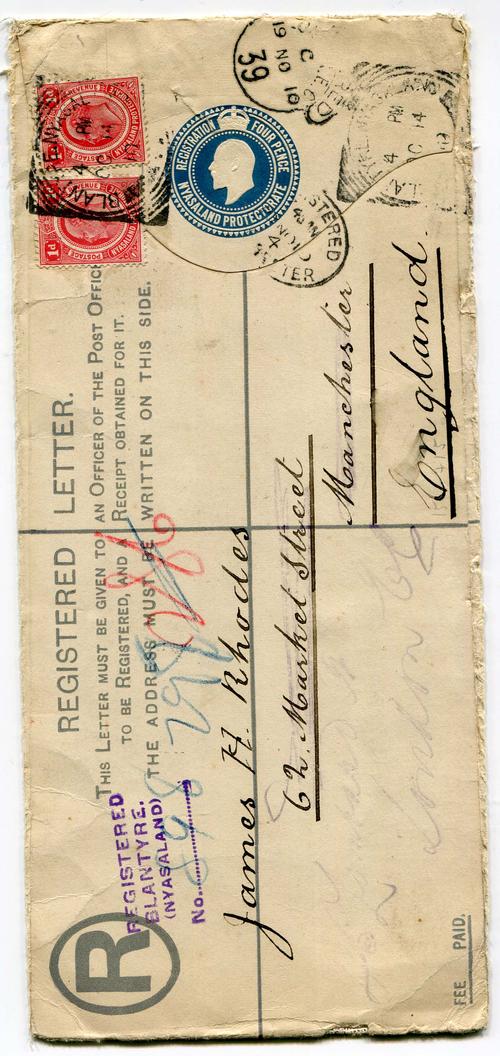 REGISTERED LETTER.
THIS LETTER MUST BE GIVEN TO AN OFFICER OF THE POST OFFICE
TO BE REGISTERED, AND A RECEIPT OBTAINED FOR IT.
THE ADDRESS MUST BE WRITTEN ON THIS SIDE.
R
REGISTERED
BLANTYRE.
(NYASALAND)
No.
James H. Rhodes
62. Market Street
Manchester
England.
FEE PAID.
REGISTRATION FOUR PENCE
NYASALAND PROTECTORATE
POSTAGE REVENUE
1d
NYASALAND
POSTAGE
REVENUE
1d
NYASALAND
BLAN
4 PM
14
4 PM
14
39
19 NO